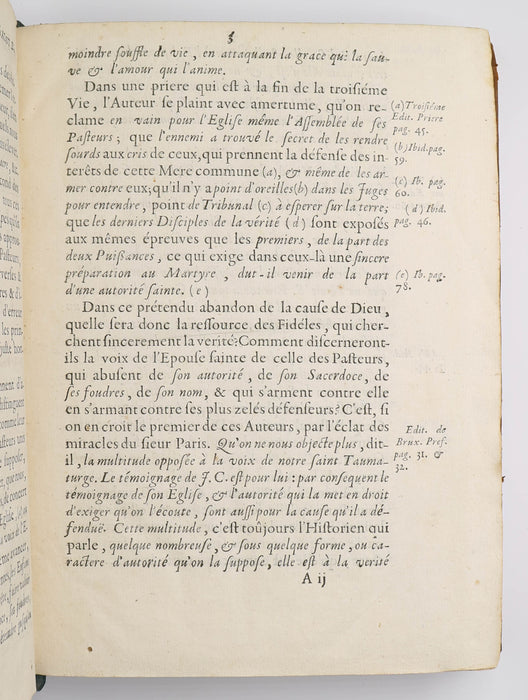 3
moindre souffle de vie, en attaquant la grace qui la sau-
ve & l'amour qui l'anime.
Dans une priere qui est à la fin de la troisiéme
Vie, l'Auteur se plaint avec amertume, qu'on re-
clame en vain pour l'Eglise même l'Assemblée de ses
Pasteurs; que l'ennemi a trouvé le secret de les rendre
sourds aux cris de ceux, qui prennent la défense des in-
terêts de cette Mere commune (a), & même de les ar-
mer contre eux; qu'il n'y a point d'oreilles (b) dans les Juges
pour entendre, point de Tribunal (c) à esperer sur la terre;
que les derniers Disciples de la vérité (d) sont exposés
aux mêmes épreuves que les premiers, de la part des
deux Puissances, ce qui exige dans ceux-là une sincere
préparation au Martyre, dut-il venir de la part
d'une autorité sainte. (e)
(a) Troisiéme
Edit. Priere
pag. 45.
(b) Ibid. pag.
59.
(c) Ib. pag.
60.
(d) Ibid.
pag. 46.
(e) Ib. pag.
78.
Dans ce prétendu abandon de la cause de Dieu,
quelle sera donc la ressource des Fidéles, qui cher-
chent sincerement la verité? Comment discerneront-
ils la voix de l'Epouse sainte de celle des Pasteurs,
qui abusent de son autorité, de son Sacerdoce, de
ses foudres, de son nom, & qui s'arment contre elle
en s'armant contre ses plus zelés défenseurs? C'est, si
on en croit le premier de ces Auteurs, par l'éclat des
miracles du sieur Paris. Qu'on ne nous objecte plus, dit-
il, la multitude opposée à la voix de notre saint Tauma-
turge. Le témoignage de J. C. est pour lui: par consequent le
témoignage de son Eglise, & l'autorité qui la met en droit
d'exiger qu'on l'écoute, sont aussi pour la cause qu'il a dé-
fenduë. Cette multitude, c'est toûjours l'Historien qui
parle, quelque nombreuse, & sous quelque forme, ou ca-
ractere d'autorité qu'on la suppose, elle est à la verité
Edit. de
Brux. Pref.
pag. 31. &
32.
A ij